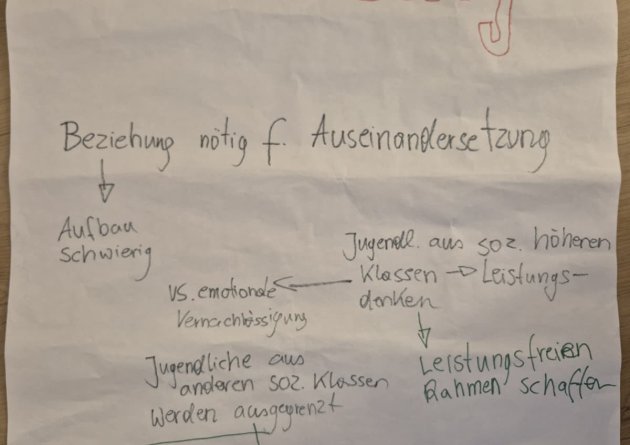 Beziehung nötig f. Auseinandersetzung
Aufbau
schwierig
Jugendl. aus soz. höheren
Klassen → Leistungs-
denken
vs. emotionale
Vernachlässigung
Leistungsfreien
Rahmen schaffen
Jugendliche aus
anderen soz. Klassen
werden ausgegrenzt